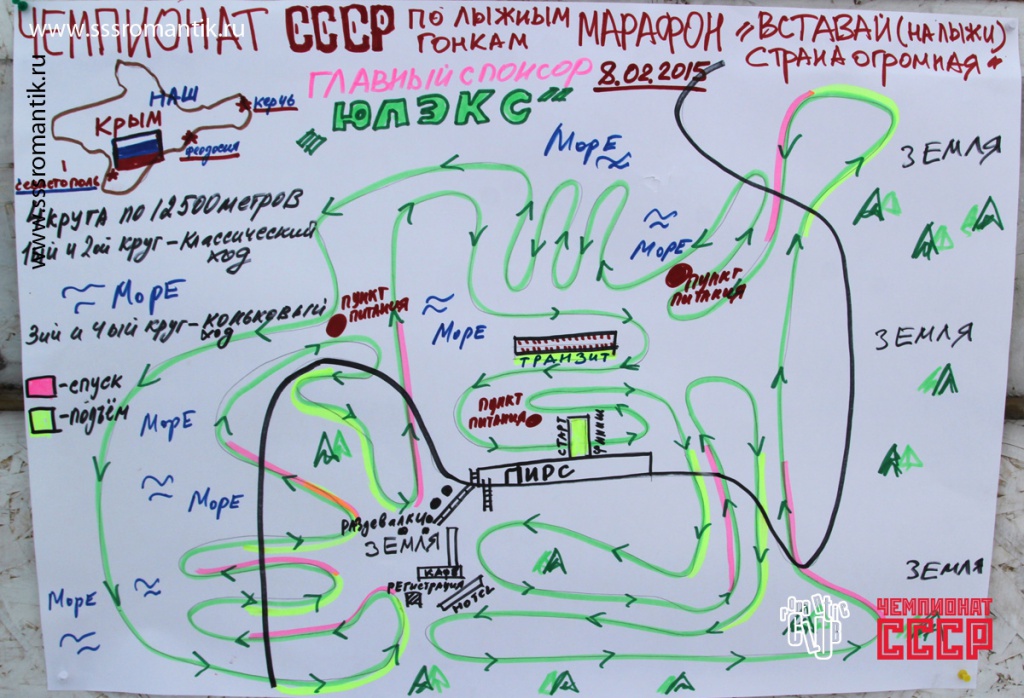 www.sssromantik.ru
ЧЕМПИОНАТ СССР ПО ЛЫЖНЫМ ГОНКАМ МАРАФОН „ВСТАВАЙ (НА ЛЫЖИ)
СТРАНА ОГРОМНАЯ"
ГЛАВНЫЙ СПОНСОР
8.02.2015
„ЮЛЭКС"
НАШ
КРЫМ
КЕРЧЬ
ФЕОДОСИЯ
СЕВАСТОПОЛЬ
www.sssromantik.ru
4 КРУГА ПО 12500 МЕТРОВ
1ый и 2ой КРУГ - КЛАССИЧЕСКИЙ
ХОД
МОРЕ
3ий и 4ый КРУГ - КОНЬКОВЫЙ
ХОД
- СПУСК
- ПОДЪЁМ
МОРЕ
МОРЕ
МОРЕ
МОРЕ
МОРЕ
МОРЕ
ПУНКТ
ПИТАНИЯ
ПУНКТ
ПИТАНИЯ
ПУНКТ
ПИТАНИЯ
ТРАНЗИТ
СТАРТ
ФИНИШ
ПИРС
РАЗДЕВАЛКИ
ЗЕМЛЯ
КАФЕ
РЕГИСТРАЦИЯ
HOTEL
ЗЕМЛЯ
ЗЕМЛЯ
ЗЕМЛЯ
ЧЕМПИОНАТ
СССР